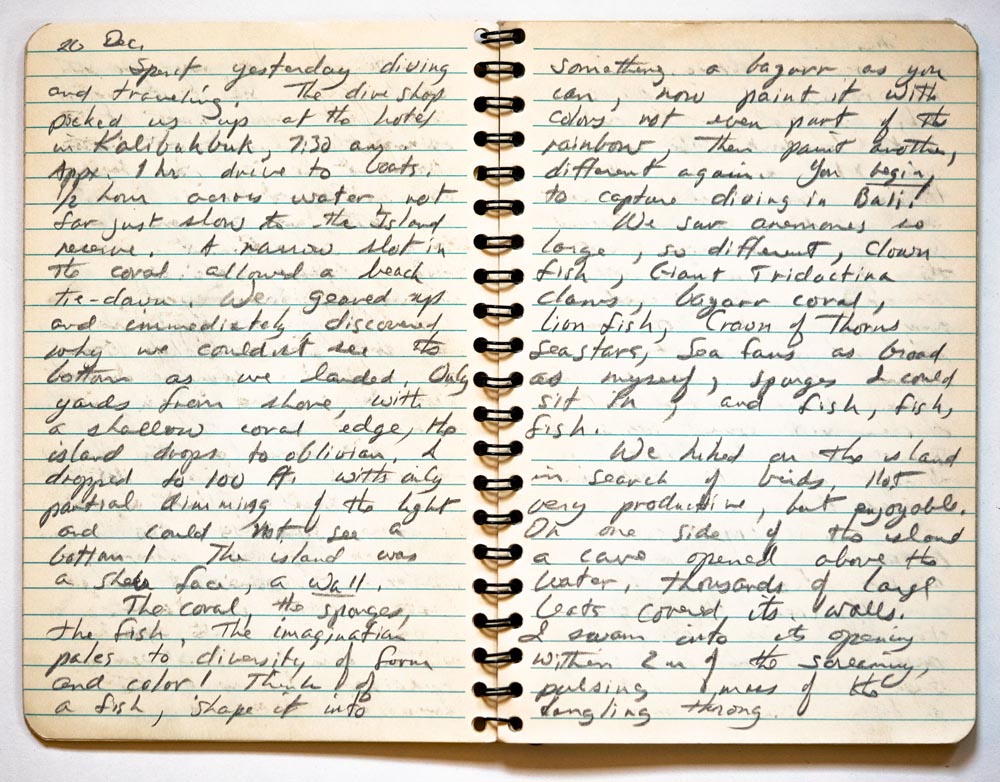 20 Dec,
Spent yesterday diving
and traveling. The dive shop
picked us up at the hotel
in Kalibukbuk, 7:30 am.
Appx. 1 hr drive to boats.
1/2 hour across water, not
far just slow to the Island
reserve. A narrow slot in
the coral allowed a beach
tie-down. We geared up
and immediately discovered
why we couldn't see the
bottom as we landed. Only
yards from shore, with
a shallow coral edge, the
island drops to oblivian. I
dropped to 100 ft. with only
partial dimming of the light
and could not see a
bottom! The island was
a face, a wall.
The coral, the sponges,
the fish, The imagination
pales to diversity of form
and color! Think of
a fish, shape it into
something a bazarr as you
can, now paint it with
colors not even part of the
rainbow, Then paint another,
different again. You begin,
to capture diving in Bali!
We saw anemones so
large, so different, Clown
fish, Giant Tridactina
clams, bazarr coral,
lion fish, Crown of Thorns
seastars, Sea fans as broad
as myself, sponges I could
sit in, and fish, fish,
fish.
We hiked on the island
in search of birds, Not
very productive, but enjoyable.
On one side of the island
a cave opened above the
water, thousands of large
bats covered its walls.
I swam into its opening
within 2 m of the screaming,
pulsing mass of the
dangling throng.